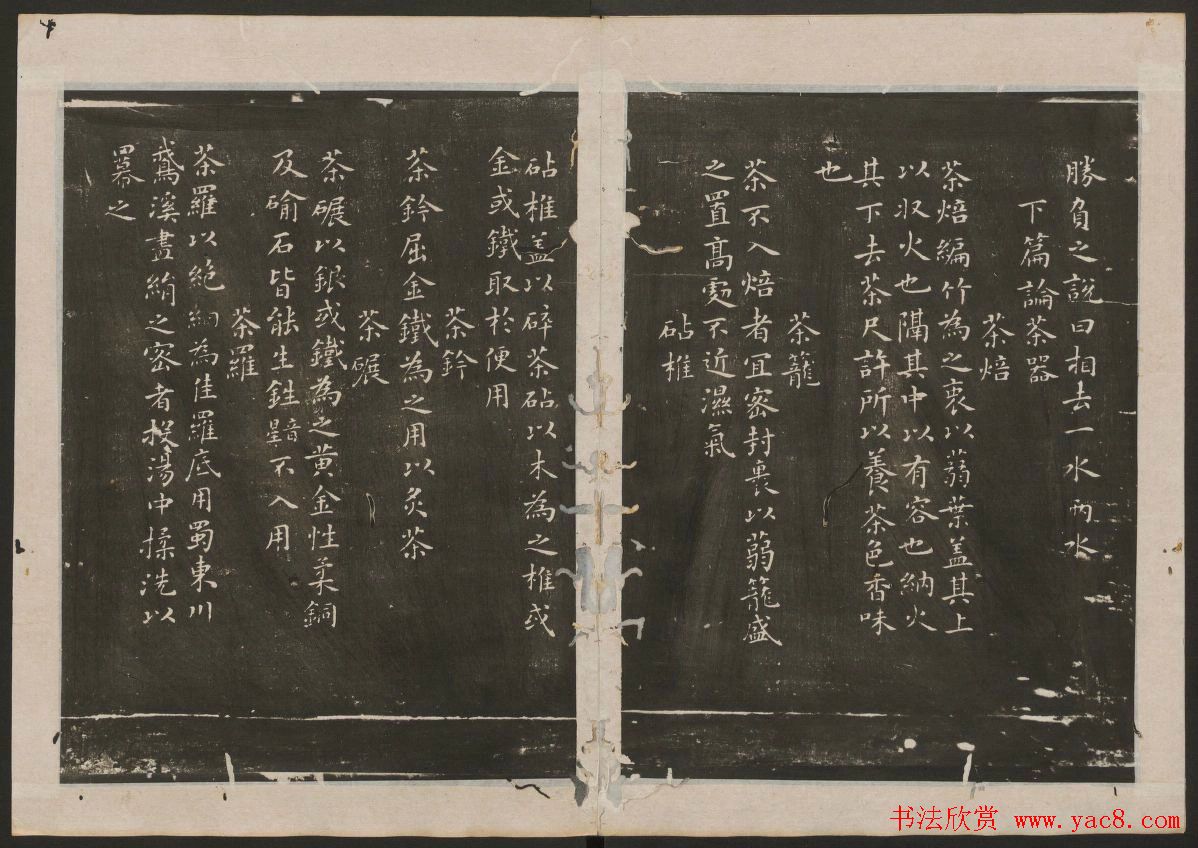 勝負之說曰相去一水兩水
下篇論茶器
茶焙
茶焙編竹為之裹以蒻葉盖其上
以収火也隔其中以有容也納火
其下去茶尺許所以養茶色香味
也
茶籠
茶不入焙者宜密封裹以蒻籠盛
之置高處不近濕氣
砧椎
砧椎盖以碎茶砧以木為之椎或
金或鐵取於便用
茶鈐
茶鈐屈金鐵為之用以炙茶
茶碾
茶碾以銀或鐵為之黄金性柔銅
及鍮石皆能生鉎不入用
茶羅
茶羅以絶細為佳羅底用蜀東川
鵞溪畫絹之密者投湯中揉洗以
羃之
书法欣赏 www.yac8.com